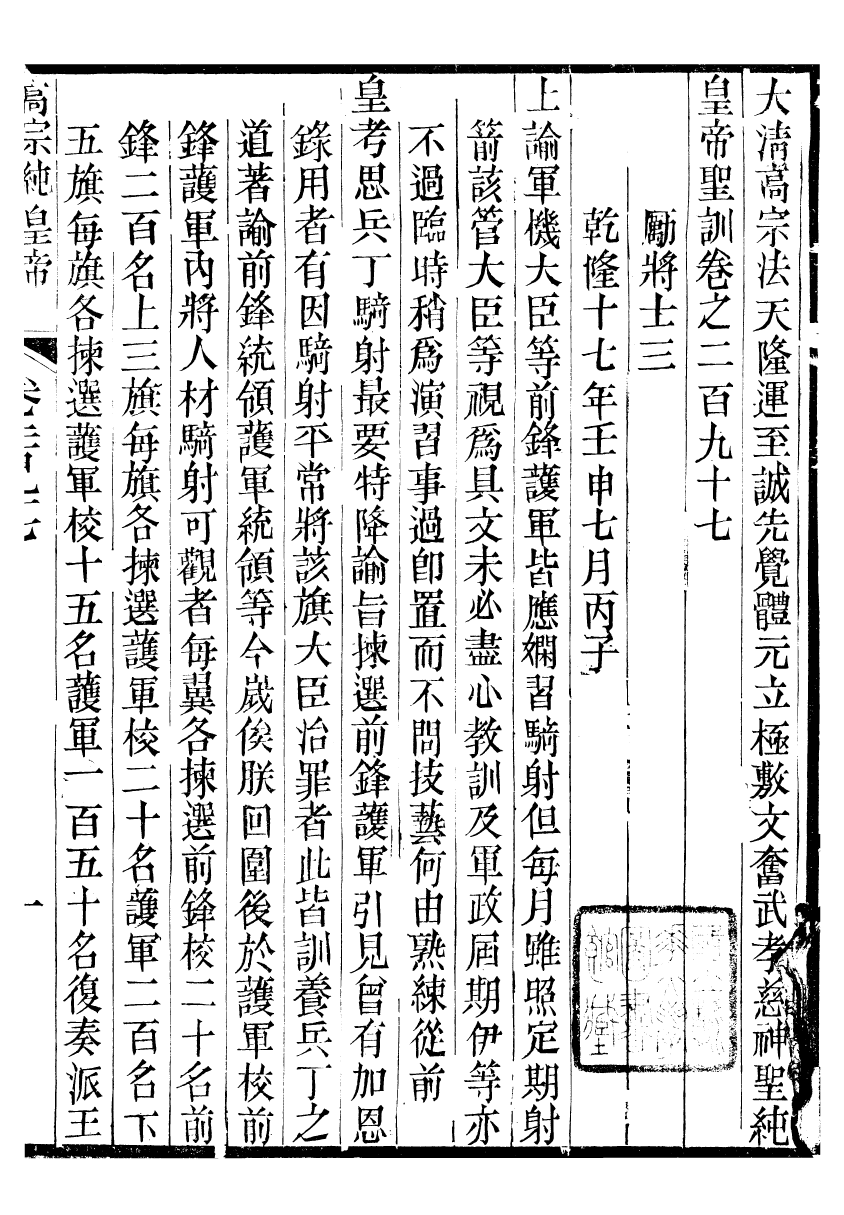 大淸高宗法天隆運至誠先覺體元立極敷文奮武孝慈神聖純
皇帝聖訓卷之二百九十七
勵將士三
乾隆十七年壬申七月丙子
上諭軍機大臣等前鋒護軍皆應嫻習騎射但每月雖照定期射
箭該管大臣等視爲具文未必盡心教訓及軍政屆期伊等亦
不過臨時稍爲演習事過卽置而不問技藝何由熟練從前
皇考思兵丁騎射最要特降諭旨揀選前鋒護軍引見曾有加恩
錄用者有因騎射平常將該旗大臣治罪者此皆訓養兵丁之
道著諭前鋒統領護軍統領等今歲俟朕回圍後於護軍校前
鋒護軍內將人材騎射可觀者每翼各揀選前鋒校二十名前
鋒二百名上三旗每旗各揀選護軍校二十名護軍二百名下
五旗每旗各揀選護軍校十五名護軍一百五十名復奏派王
高宗純皇帝
卷二百九十七
一